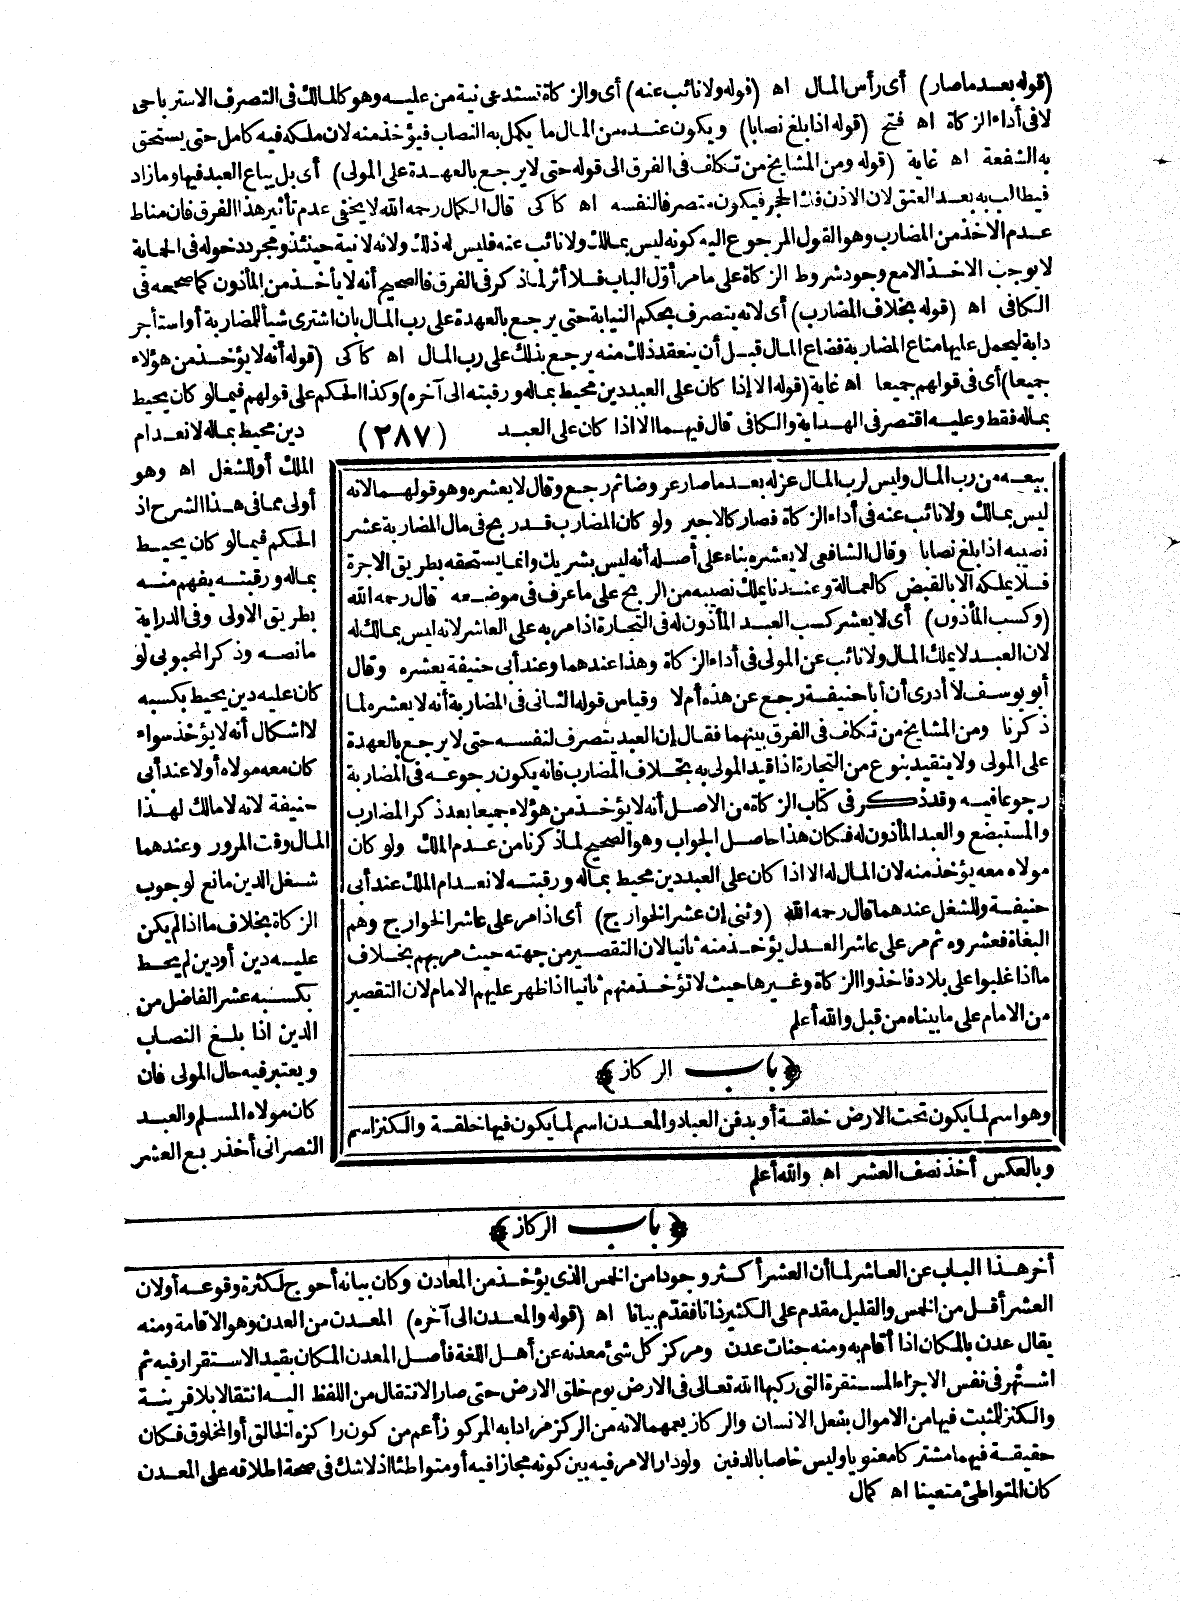 (قوله بعد ما صار) أى رأس المال اه (قوله ولا نائب عنه) أى والزكاة تستدعى نية من عليه وهو كالمالك فى التصرف الاسترباحى
لا فى أداء الزكاة اه فتح (قوله اذا بلغ نصابا) ويكون عنده من المال ما يكمل به النصاب فيؤخذ منه لان ملكه فيه كامل حتى يستحق
به الشفعة اه غاية (قوله ومن المشايخ من تكاف فى الفرق الى قوله حتى لا يرجع بالعهدة على المولى) أى بل يباع العبد فيها وما زاد
فيطالب به بعد العتق لان الاذن فك الحجر فيكون متصرفا لنفسه اه كاكى قال الكمال رحمه الله لا يخفى عدم تأثير هذا الفرق فان مناط
عدم الاخذ من المضارب وهو القول المرجوع اليه كونه ليس بمالك ولا نائب عنه فليس له ذلك ولانه لا نية حينئذ ومجرد دخوله فى الحماية
لا يوجب الاخذ الا مع وجود شروط الزكاة على ما مر أول الباب فلا أثر لما ذكر فى الفرق فالصحيح أنه لا يأخذ من المأذون كما صححه فى
الكافى اه (قوله بخلاف المضارب) أى لانه يتصرف بحكم النيابة حتى يرجع بالعهدة على رب المال بان اشترى شيأ للمضاربة أو استأجر
دابة ليحمل عليها متاع المضاربة فضاع المال قبل أن ينعقد ذلك منه يرجع بذلك على رب المال اه كاكى (قوله أنه لا يؤخذ من هؤلاء
جميعا) أى فى قولهم جميعا اه غاية (قوله الا إذا كان على العبد دين محيط بماله ورقبته الى آخره) وكذا الحكم على قولهم فيما لو كان يحيط
بماله فقط وعليه اقتصر فى الهداية والكافى قال فيهما الا اذا كان على العبد (٢٨٧) دين محيط بماله لانعدام
الملك أو للشغل اه وهو
أولى مما فى هذا الشرح اذ
الحكم فيما لو كان يحيط
بماله ورقبته يفهم منه
بطريق الاولى وفى الدراية
ما نصه وذكر المحبوبى لو
كان عليه دين يحيط بكسبه
لا اشكال أنه لا يؤخذ سواء
كان معه مولاه أولا عند أبى
حنيفة لانه لا مالك لهذا
المال وقت المرور وعندهما
شغل الدين مانع لوجوب
الزكاة بخلاف ما اذا لم يكن
عليه دين أو دين لم يحط
بكسبه عشر الفاضل من
الدين اذا بلغ النصاب
ويعتبر فيه حال المولى فان
كان مولاه المسلم والعبد
النصرانى أخذ ربع العشر
بيعه من رب المال وليس لرب المال عزله بعد ما صار عروضا ثم رجع وقال لا يعشره وهو قولهما لانه
ليس بمالك ولا نائب عنه فى أداء الزكاة فصار كالاجير ولو كان المضارب قد ربح فى مال المضاربة عشر
نصيبه اذا بلغ نصابا وقال الشافعى لا يعشره بناء على أصله أنه ليس بشريك وانما يستحقه بطريق الاجرة
فلا يملكه الا بالقبض كالعمالة وعندنا يملك نصيبه من الربح على ما عرف فى موضعه قال رحمه الله
(وكسب المأذون) أى لا يعشر كسب العبد المأذون له فى التجارة اذا مر به على العاشر لانه ليس بمالك له
لان العبد لا يملك المال ولا نائب عن المولى فى أداء الزكاة وهذا عندهما وعند أبى حنيفة يعشره وقال
أبو يوسف لا أدرى أن أبا حنيفة رجع عن هذه أم لا وقياس قوله الثانى فى المضاربة أنه لا يعشره لما
ذكرنا ومن المشايخ من تكاف فى الفرق بينهما فقال إن العبد يتصرف لنفسه حتى لا يرجع بالعهدة
على المولى ولا يتقيد بنوع من التجارة اذا قيد المولى به بخلاف المضارب فانه يكون رجوعه فى المضاربة
رجوعا فيه وقد ذكر فى كتاب الزكاة من الاصل أنه لا يؤخذ من هؤلاء جميعا بعد ذكر المضارب
والمستبضع والعبد المأذون له فكان هذا حاصل الجواب وهو الصحيح لما ذكرنا من عدم الملك ولو كان
مولاه معه يؤخذ منه لان المال له الا اذا كان على العبد دين محيط بماله ورقبته لانعدام الملك عند أبى
حنيفة وللشغل عندهما قال رحمه الله (وثنى إن عشر الخوارج) أى اذا مر على عاشر الخوارج وهم
البغاة فعشروه ثم مر على عاشر العدل يؤخذ منه ثانيا لان التقصير من جهته حيث مر بهم بخلاف
ما اذا غلبوا على بلاد فاخذوا الزكاة وغيرها حيث لا تؤخذ منهم ثانيا اذا ظهر عليهم الامام لان التقصير
من الامام على ما بيناه من قبل والله أعلم
﴿باب الركاز﴾
وهو اسم لما يكون تحت الارض خلقة أو بدفن العباد والمعدن اسم لما يكون فيها خلقة والكنز اسم
وبالعكس أخذ نصف العشر اه والله أعلم
﴿باب الركاز﴾
أخر هذا الباب عن العاشر لما أن العشر أكثر وجودا من الخمس الذى يؤخذ من المعادن وكان بيانه أحوج لكثرة وقوعه أو لان
العشر أقل من الخمس والقليل مقدم على الكثير ذاتا فقدم بيانا اه (قوله والمعدن الى آخره) المعدن من العدن وهو الاقامة ومنه
يقال عدن بالمكان اذا أقام به ومنه جنات عدن ومركز كل شئ معدنه عن أهل اللغة فأصل المعدن المكان بقيد الاستقرار فيه ثم
اشتهر فى نفس الاجزاء المستقرة التى ركبها الله تعالى فى الارض يوم خلق الارض حتى صار الانتقال من اللفظ اليه انتقالا بلا قرينة
والكنز للمثبت فيها من الاموال بفعل الانسان والركاز يعمهما لانه من الركز مرادا به المركوز أعم من كون راكزه الخالق أو المخلوق فكان
حقيقة فيهما مشتركا معنويا وليس خاصا بالدفين ولو دار الامر فيه بين كونه مجازا فيه أو متواطئا اذ لا شك فى صحة اطلاقه على المعدن
كان المتواطئ متعينا اه كمال